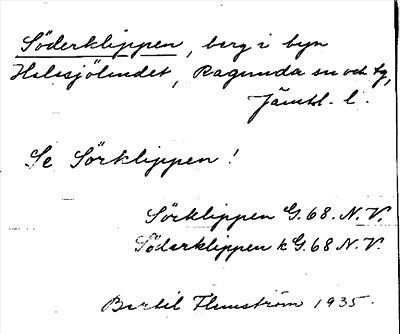 Söderklippen, berg i byn
Helsjölandet, Ragunda sn och tg,
Jämtl. l.
Se Sörklippen!
Sörklippen G.68.N.V.
Söderklippen k G.68 N.V.
Bertil Flemström 1935.